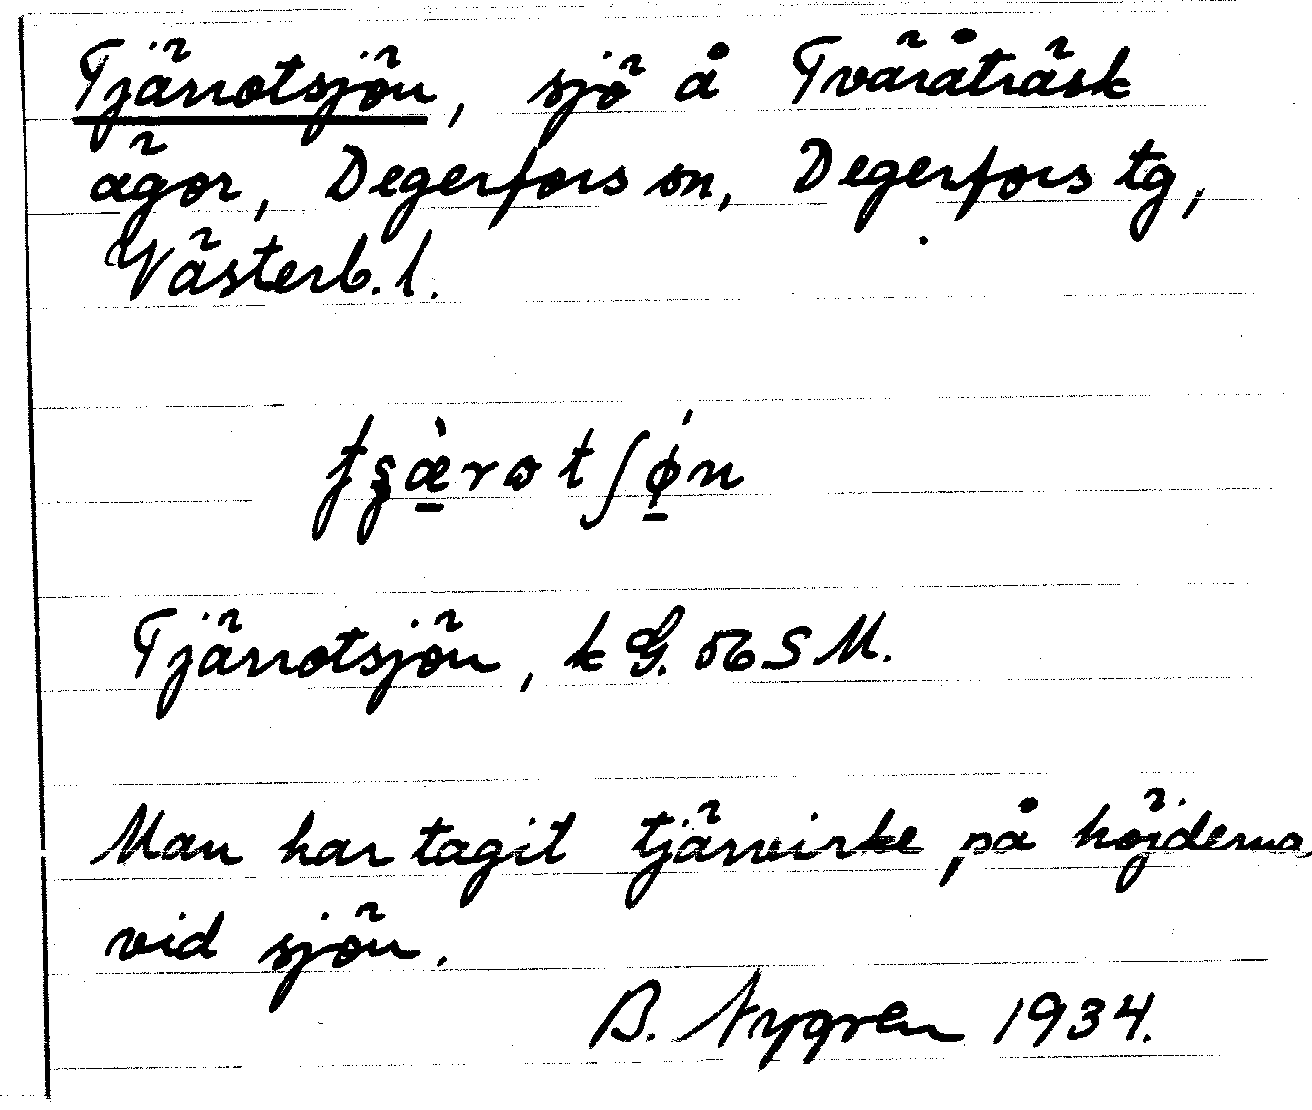 Tjärrotsjön, sjö å Tväråträsk
ägor, Degerfors sn, Degerfors tg,
Västerb. l.
Tjärrotsjön, k G. 56 S M.
Man har tagit tjärvirke på höjderna
vid sjön.
B. Nygren 1934.